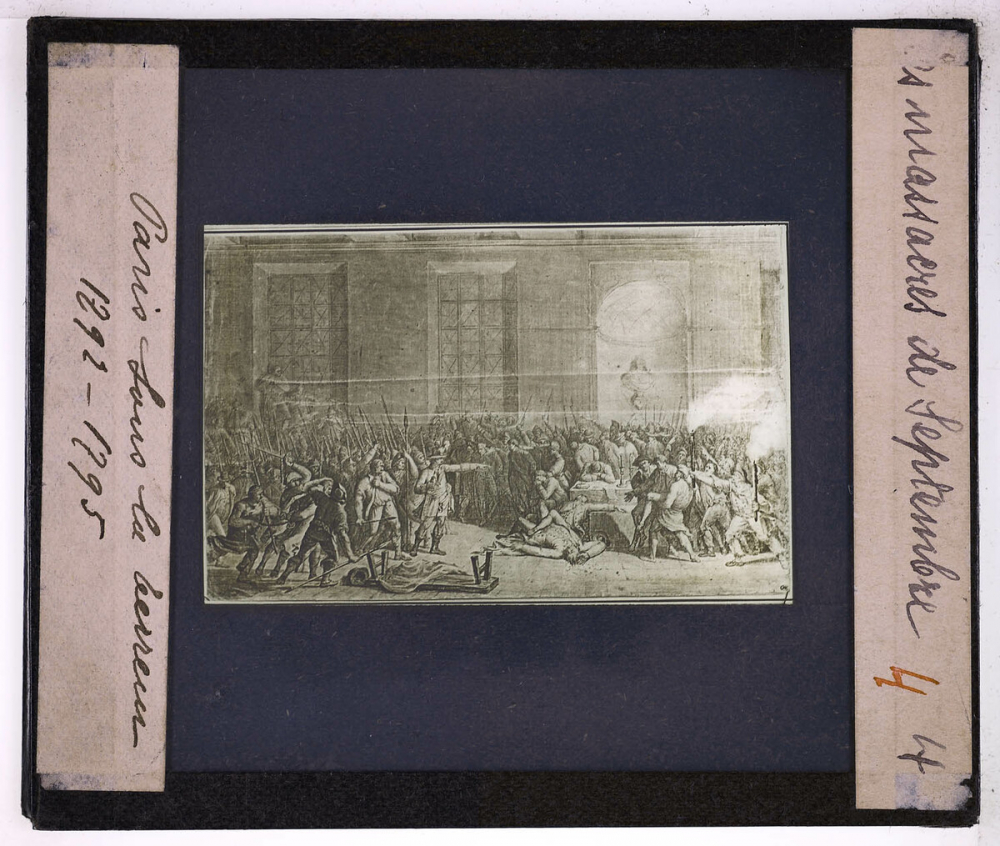 Paris sous la terreur
1792 - 1795
s massacres de Septembre 4 4